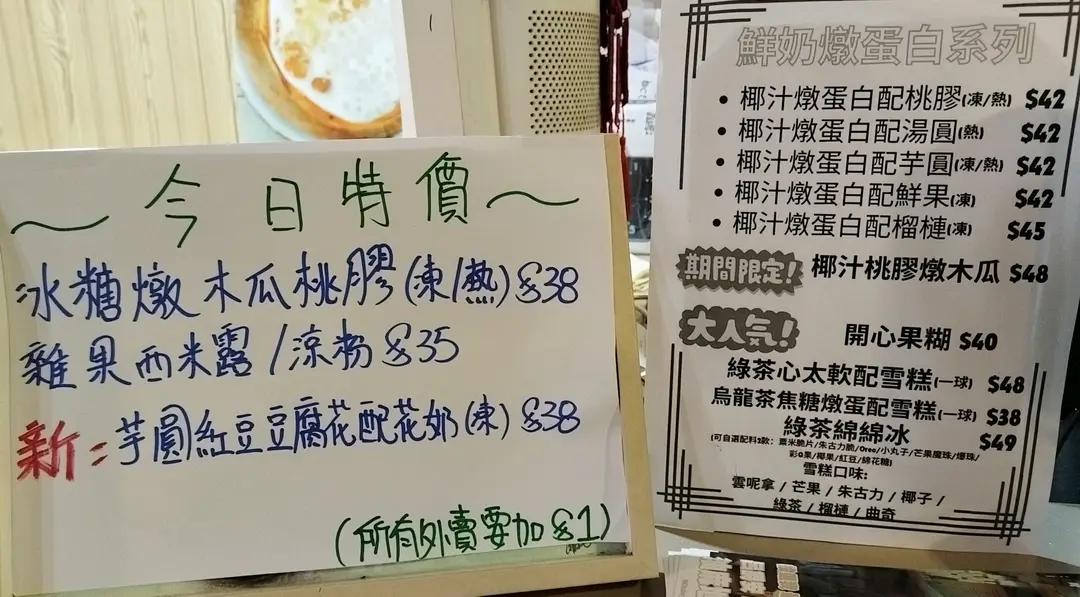 ～今日特價～
冰糖燉木瓜桃膠(凍/熱)$38
雜果西米露/涼粉$35
新：芋圓紅豆豆腐花配花奶(凍)$38
(所有外賣要加$1)
鮮奶燉蛋白系列
• 椰汁燉蛋白配桃膠(凍/熱) $42
• 椰汁燉蛋白配湯圓(熱) $42
• 椰汁燉蛋白配芋圓(凍/熱) $42
• 椰汁燉蛋白配鮮果(凍) $42
• 椰汁燉蛋白配榴槤(凍) $45
期間限定! 椰汁桃膠燉木瓜 $48
大人気! 開心果糊 $40
綠茶心太軟配雪糕(一球) $48
烏龍茶焦糖燉蛋配雪糕(一球) $38
綠茶綿綿冰 $49
(可自選配料2款：粟米脆片/朱古力脆/Oreo/小丸子/芒果魔珠/爆珠/
彩Q果/椰果/紅豆/綿花糖)
雪糕口味:
雲呢拿 / 芒果 / 朱古力 / 椰子 /
綠茶 / 榴槤 / 曲奇